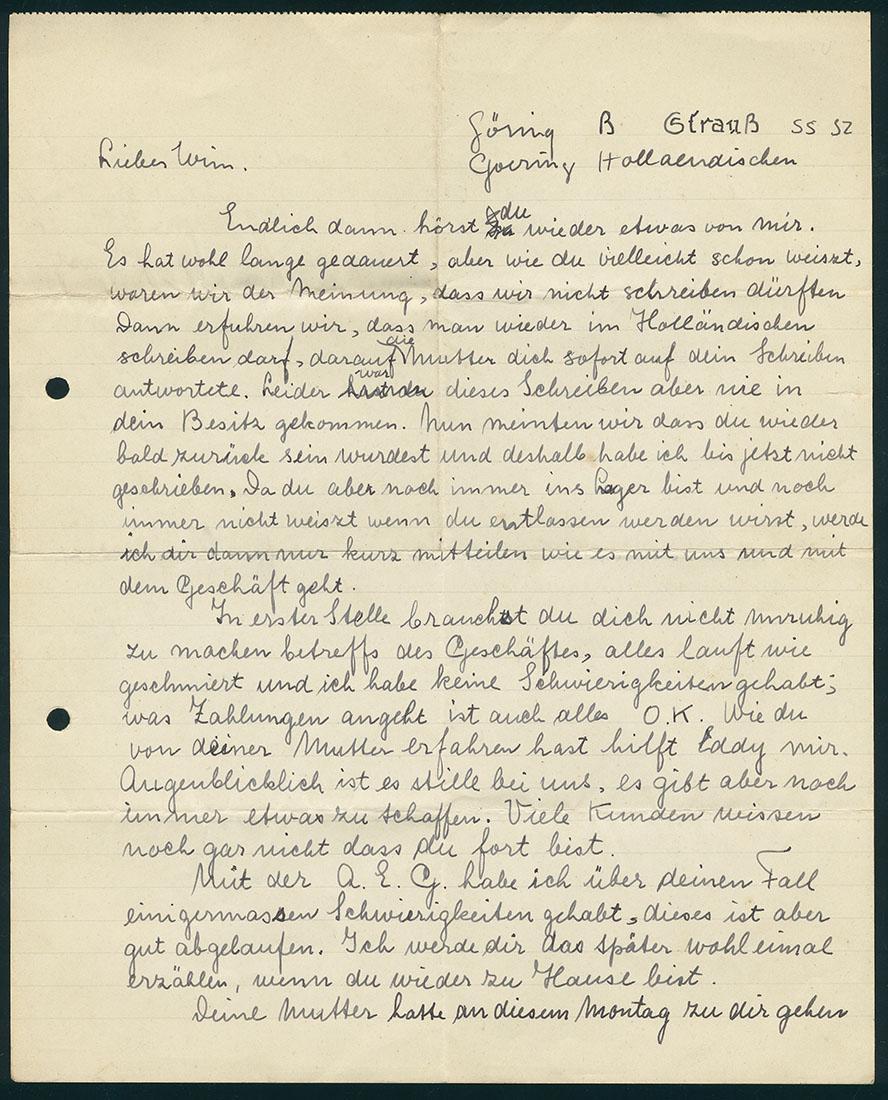 Göring B Strauß SS 52
Lieber Wim. Goering Hollaendischen
Endlich dann hörst du wieder etwas von mir.
Es hat wohl lange gedauert, aber wie du vielleicht schon weiszt,
waren wir der Meinung, dass wir nicht schreiben dürften
Dann erfuhren wir, dass man wieder im Holländischen
schreiben darf, darauf die Mutter dich sofort auf dein Schreiben
antwortete. Leider war dieses Schreiben aber nie in
dein Besitz gekommen. Nun meinten wir dass du wieder
bald zurück sein wurdest und deshalb habe ich bis jetzt nicht
geschrieben. Da du aber noch immer ins Lager bist und noch
immer nicht weiszt wenn du entlassen werden wirst, werde
ich dir dann nur kurz mitteilen wie es mit uns und mit
dem Geschäft geht.
In erster Stelle brauchst du dich nicht unruhig
zu machen betreffs des Geschäftes, alles lauft wie
geschmiert und ich habe keine Schwierigkeiten gehabt;
was Zahlungen angeht ist auch alles O.K. Wie du
von deiner Mutter erfahren hast hilft Eddy mir.
Augenblicklich ist es stille bei uns, es gibt aber noch
immer etwas zu schaffen. Viele Kunden wissen
noch gar nicht dass du fort bist.
Mit der A.E.G. habe ich über deinen Fall
einigermassen Schwierigkeiten gehabt, dieses ist aber
gut abgelaufen. Ich werde dir das später wohl eimal
erzählen, wenn du wieder zu Hause bist.
Deine Mutter hatte an diesem Montag zu dir gehen